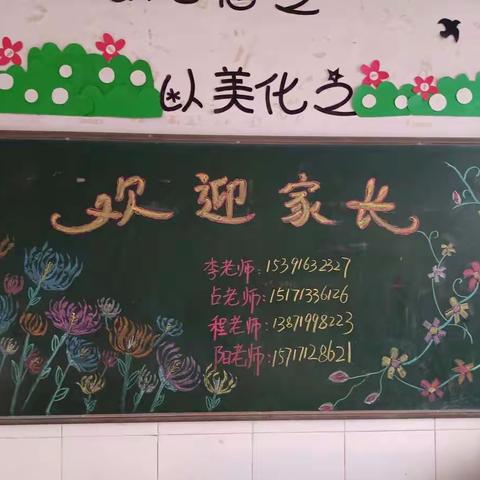 以美化之
欢迎家长
李老师:15391632327
占老师:15171336126
程老师:13871998223
阳老师:15717128621